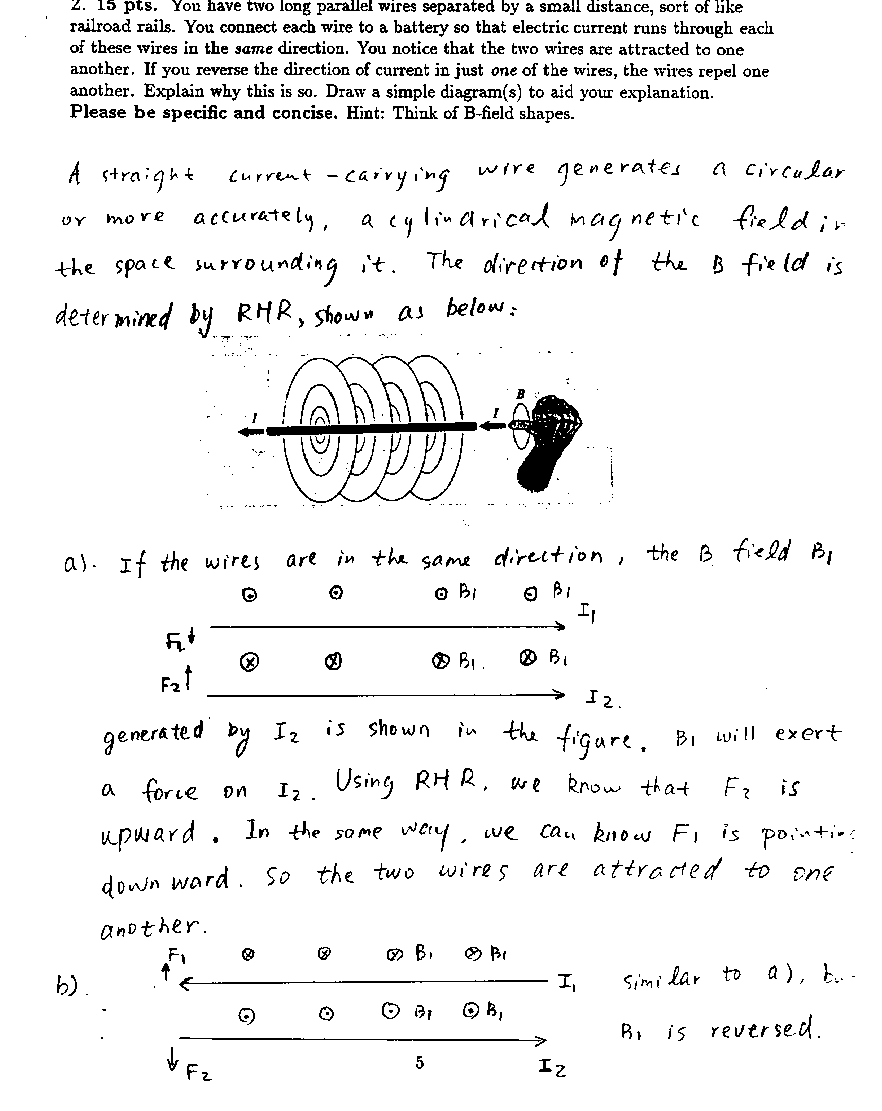 2. 15 pts. You have two long parallel wires separated by a small distance, sort of like
railroad rails. You connect each wire to a battery so that electric current runs through each
of these wires in the same direction. You notice that the two wires are attracted to one
another. If you reverse the direction of current in just one of the wires, the wires repel one
another. Explain why this is so. Draw a simple diagram(s) to aid your explanation.
Please be specific and concise. Hint: Think of B-field shapes.
A straight current-carrying wire generates a circular
or more accurately, a cylindrical magnetic field in
the space surrounding it. The direction of the B field is
determined by RHR, shown as below:
B
I
I
a). If the wires are in the same direction, the B field B1
⊙ ⊙ ⊙ B1 ⊙ B1
I1
F1
⊗ ⊗ ⊗ B1. ⊗ B1
F2
I2.
generated by I2 is shown in the figure. B1 will exert
a force on I2. Using RHR, we know that F2 is
upward. In the same way, we can know F1 is pointing
down ward. So the two wires are attracted to one
another.
F1 ⊗ ⊗ ⊗ B1 ⊗ B1
b). I1 similar to a),
⊙ ⊙ ⊙ B1 ⊙ B1 B1 is reversed.
F2 5 I2